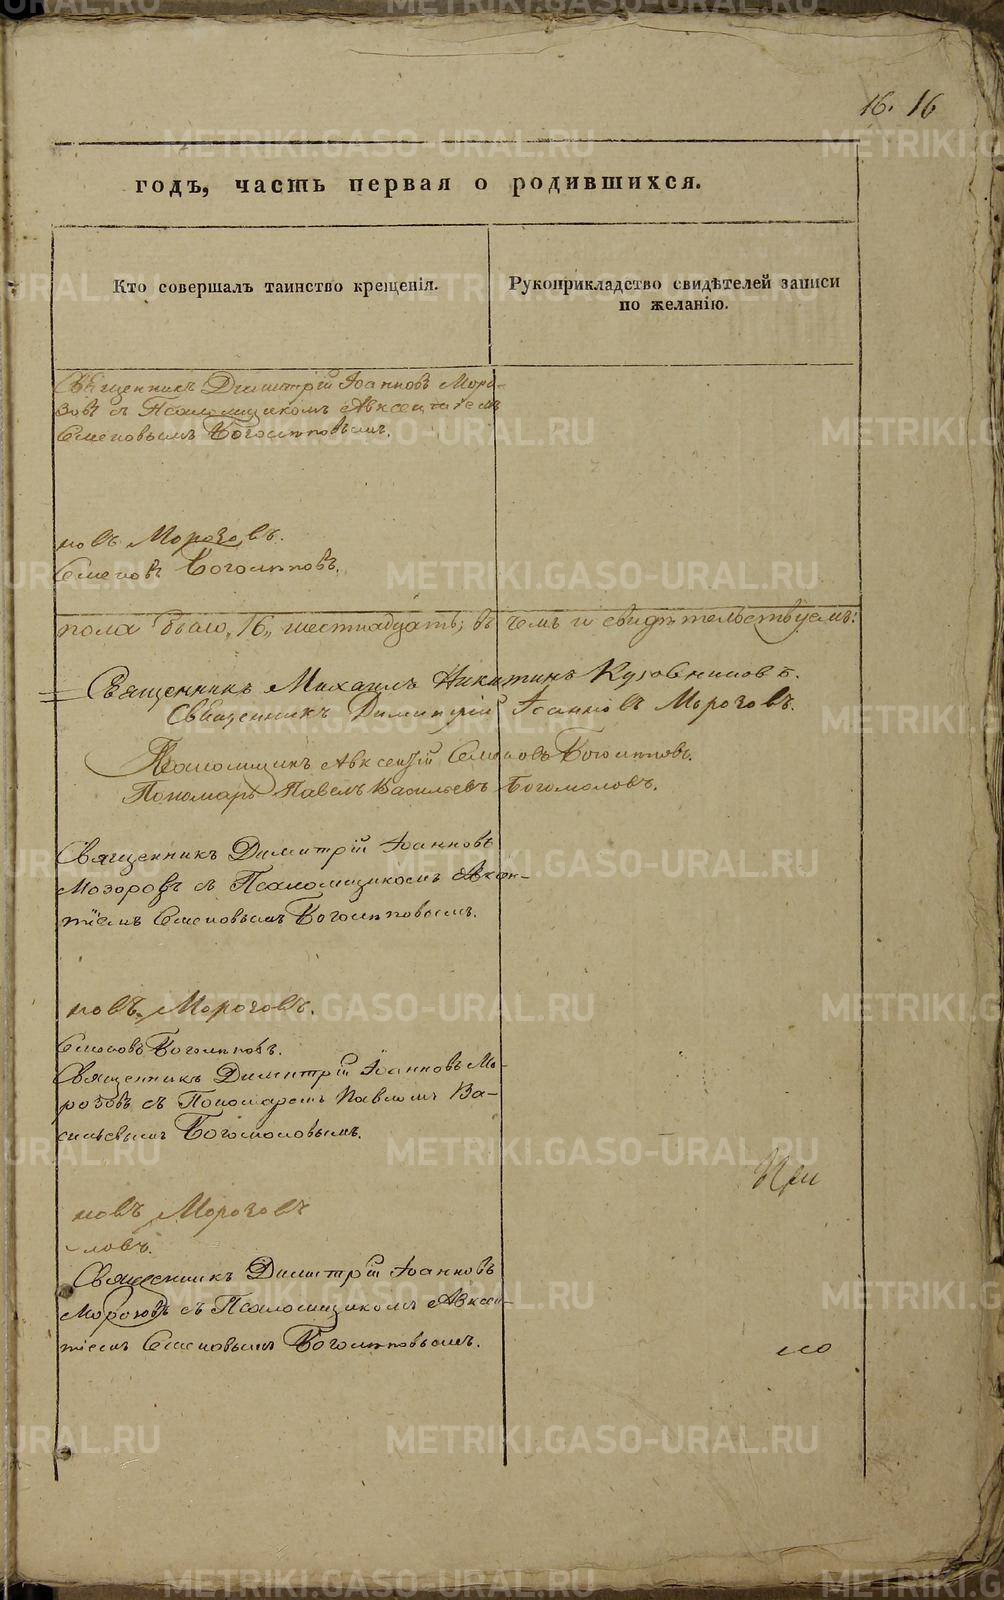 16. 16
годъ, часть первая о родившихся.
Кто совершалъ таинство крещенія.
Рукоприкладство свидѣтелей записи
по желанію.
Священникъ Димитрій Іоанновъ Моро-
зовъ съ Псаломщикомъ Авксентіемъ
Семеновымъ Боголѣповымъ.
новъ Морозовъ.
Семеновъ Боголѣповъ.
пола было „16„ шестнадцать; въ чемъ и свидѣтельствуемъ:
Священникъ Михаилъ Никитинъ
Священникъ Димитрій Іоанновъ Морозовъ.
Псаломщикъ Авксентій Семеновъ Боголѣповъ.
Пономарь Павелъ Васильевъ Богомоловъ.
Священникъ Димитрій Іоанновъ
Мозоровъ съ Псаломщикомъ Авксен-
тіемъ Семеновымъ Боголѣповымъ.
новъ Морозовъ.
Семеновъ Боголѣповъ.
Священникъ Димитрій Іоанновъ Мо-
розовъ съ Пономаремъ Павломъ Ва-
сильевымъ Богомоловымъ.
При
новъ Морозовъ
ловъ.
Священникъ Димитрій Іоанновъ
Морозовъ съ Псаломщикомъ Авксен-
тіемъ Семеновымъ Боголѣповымъ.
METRIKI.GASO-URAL.RU